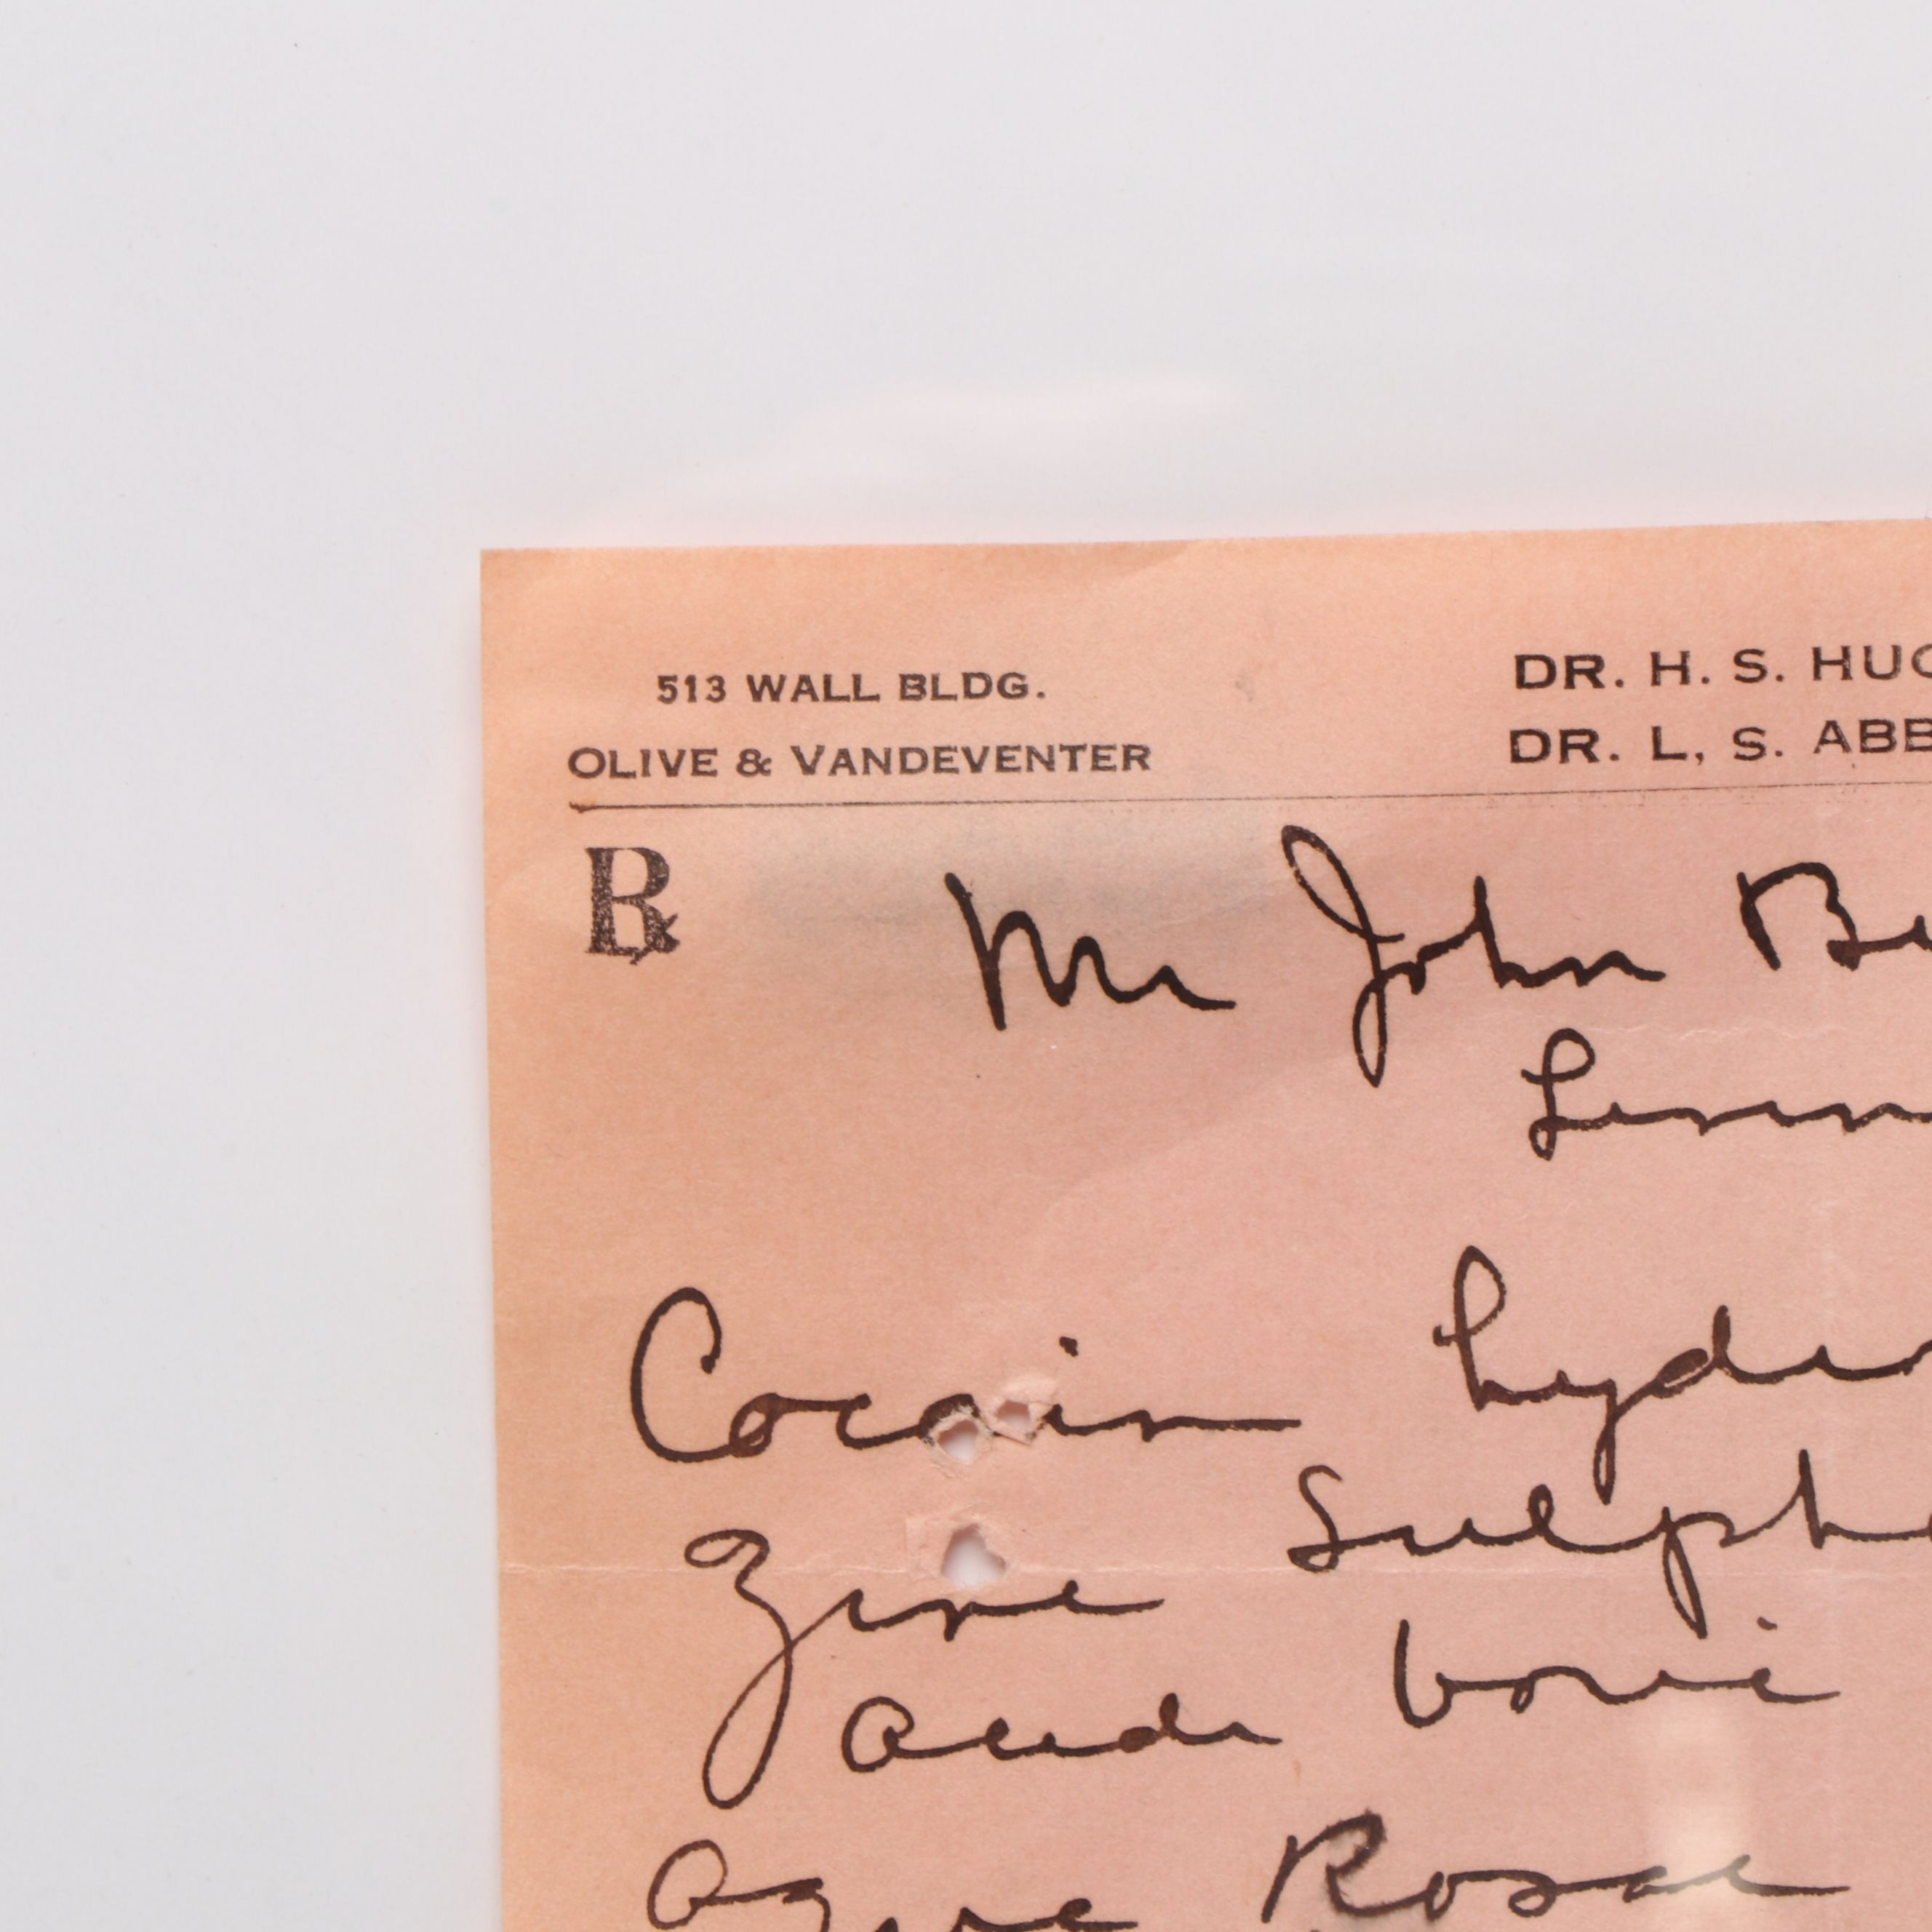 513 WALL BLDG.
OLIVE & VANDEVENTER
DR. H. S. HUG
DR. L, S. ABB
℞
Mr John Be
Cocain hydro
Zinc Sulpha
Acide boric
Aque Rosae